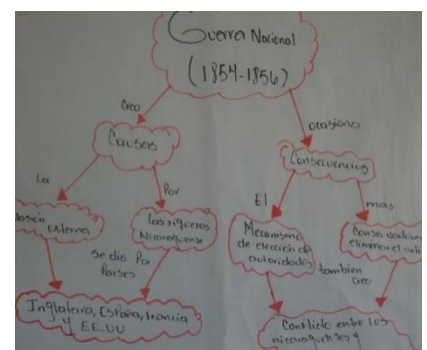 Guerra Nacional
(1854-1856)
Creo
ocasiono
Causas
Consecuencias
La
Por
El
mas
Externa
Las riqueras
Nicaraguense
Mecanismo
de elección de
autoridades
eliminar el
se dio Por
Países
tambien
creo
Inglaterra, España, francia
y EE.UU
Conflicto entre los
nicaraguenses y